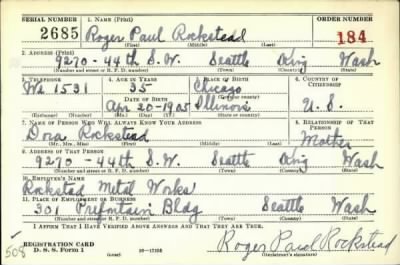 SERIAL NUMBER 1. NAME (Print) ORDER NUMBER
2685 Roger Paul Rockstead 184
(First) (Middle) (Last)
2. ADDRESS (Print)
9270-44th S.W. Seattle King Wash
(Number and street or R. F. D. number) (Town) (County) (State)
3. TELEPHONE 4. AGE IN YEARS 5. PLACE OF BIRTH 6. COUNTRY OF CITIZENSHIP
We 1531 35 Chicago
DATE OF BIRTH
Apr 20-1905 Illinois U.S.
7. NAME OF PERSON WHO WILL ALWAYS KNOW YOUR ADDRESS 8. RELATIONSHIP OF THAT PERSON
Dora Rockstead Mother
(Mr., Mrs., Miss) (First) (Middle) (Last)
9. ADDRESS OF THAT PERSON
9270-44th S.W. Seattle King Wash
(Number and street or R. F. D. number) (Town) (County) (State)
10. EMPLOYER'S NAME
Rockstad Metal Works
11. PLACE OF EMPLOYMENT OR BUSINESS
301 Prefontain Bldg Seattle Wash
(Number and street or R. F. D. number) (Town) (County) (State)
I AFFIRM THAT I HAVE VERIFIED ABOVE ANSWERS AND THAT THEY ARE TRUE.
508 REGISTRATION CARD
D. S. S. Form 1 (over) 16-17105 Roger Paul Rockstead
(Registrant's signature)